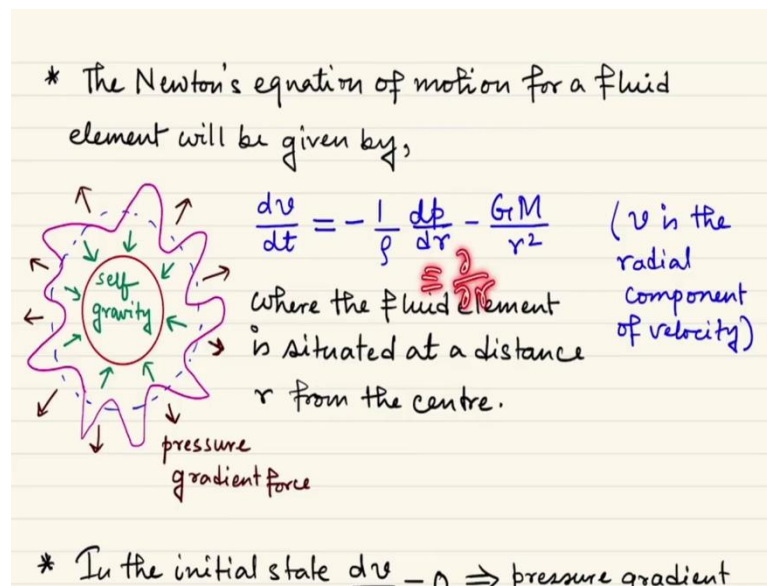 * The Newton's equation of motion for a fluid
element will be given by,
dv/dt = - 1/ρ dp/dr - GM/r² (v is the
radial
component
of velocity)
≡ ∂/∂r
self
gravity
where the fluid element
is situated at a distance
r from the centre.
pressure
gradient force
* In the initial state dv = 0 ⇒ pressure gradient